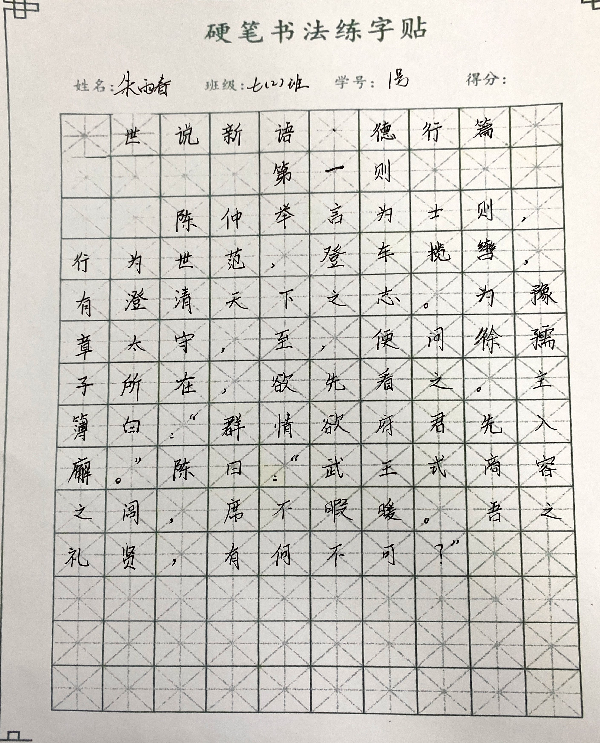 硬笔书法练字贴
姓名:朱雨春 班级:七(2)班 学号: 得分:
世说新语·德行篇
第一则
陈仲举言为士则,
行为世范,登车揽辔,
有澄清天下之志。为豫
章太守,至,便问徐孺
子所在,欲先看之。主
簿白:“群情欲府君先入
廨。”陈曰:“武王式商容
之闾,席不暇暖。吾之
礼贤,有何不可?”